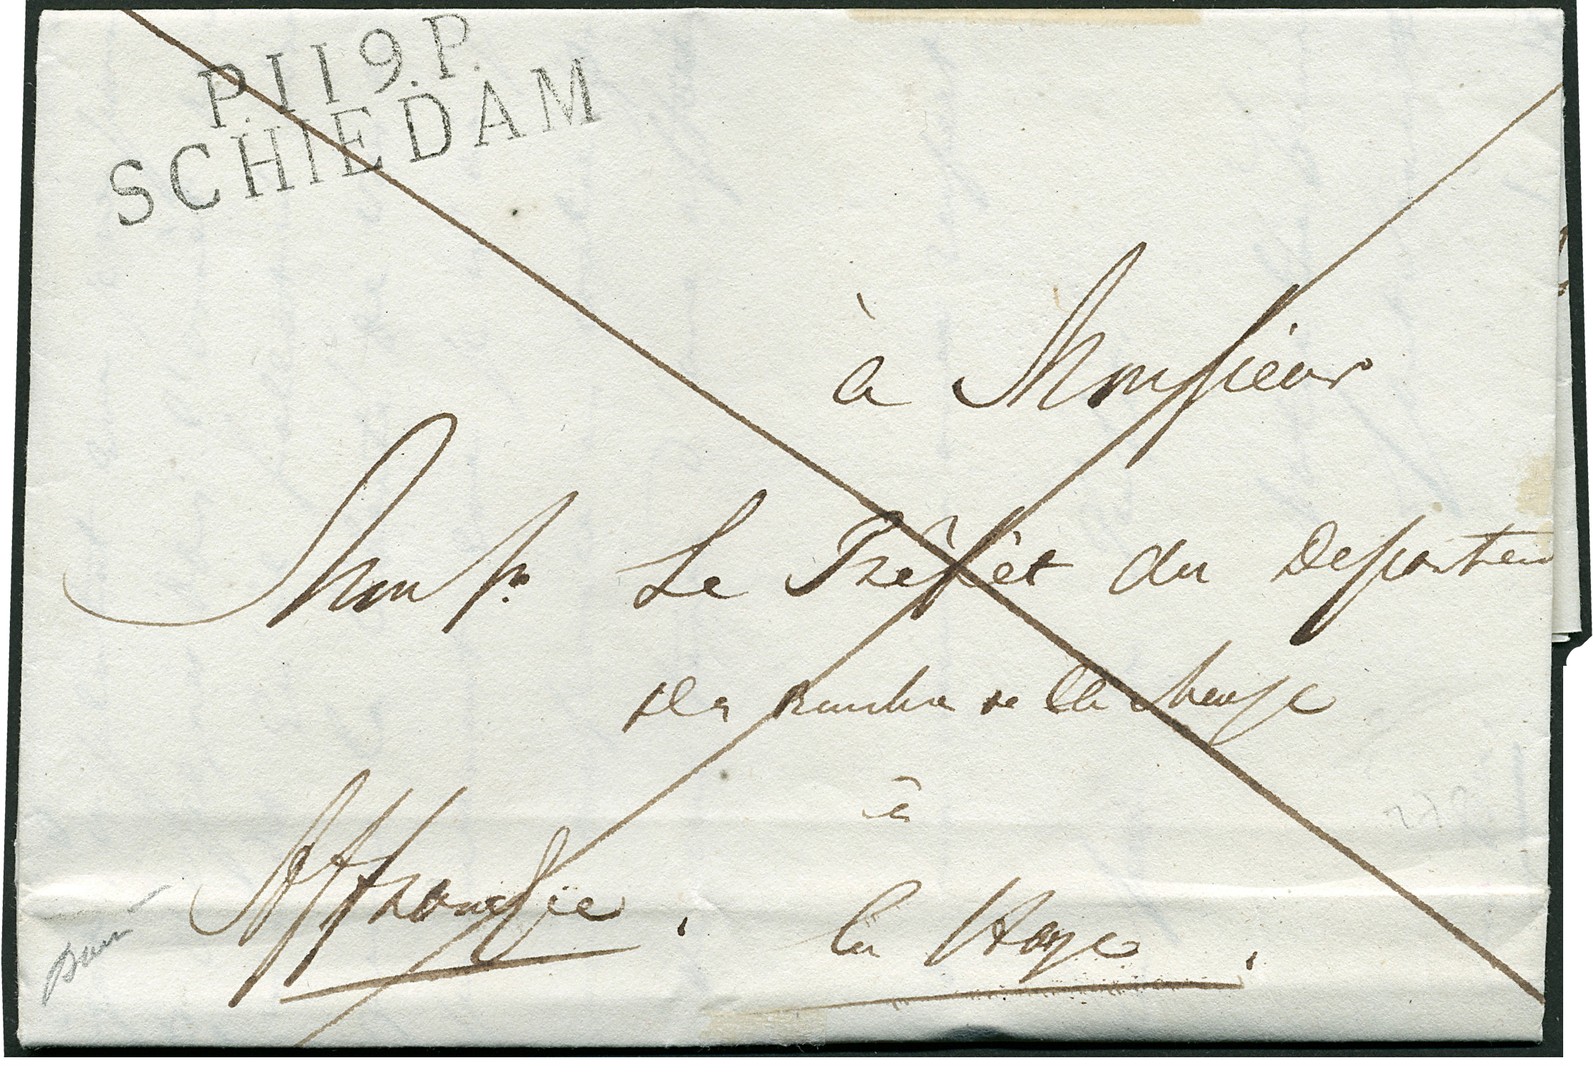 P.119.P.
SCHIEDAM
à Monsieur
Monsr. Le Prêfêt du Departem
des bouches de la Meuse
à
Affranchie.
la Haye.